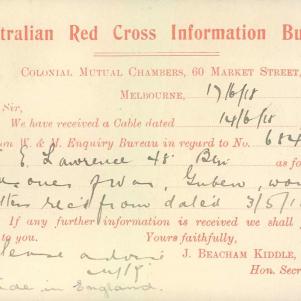 stralian Red Cross Information Bu
COLONIAL MUTUAL CHAMBERS, 60 MARKET STREET,
MELBOURNE, 17/6/18
Sir,
We have received a Cable dated 14/6/18
om W. & M. Enquiry Bureau in regard to No. 684
E. Lawrence 48 Btn as fo
Guben, wo
from dated 3/5/1
If any further information is received we shall
to you. Yours faithfully,
Please advise J. BEACHAM KIDDLE,
Hon. Secr
ade in England.